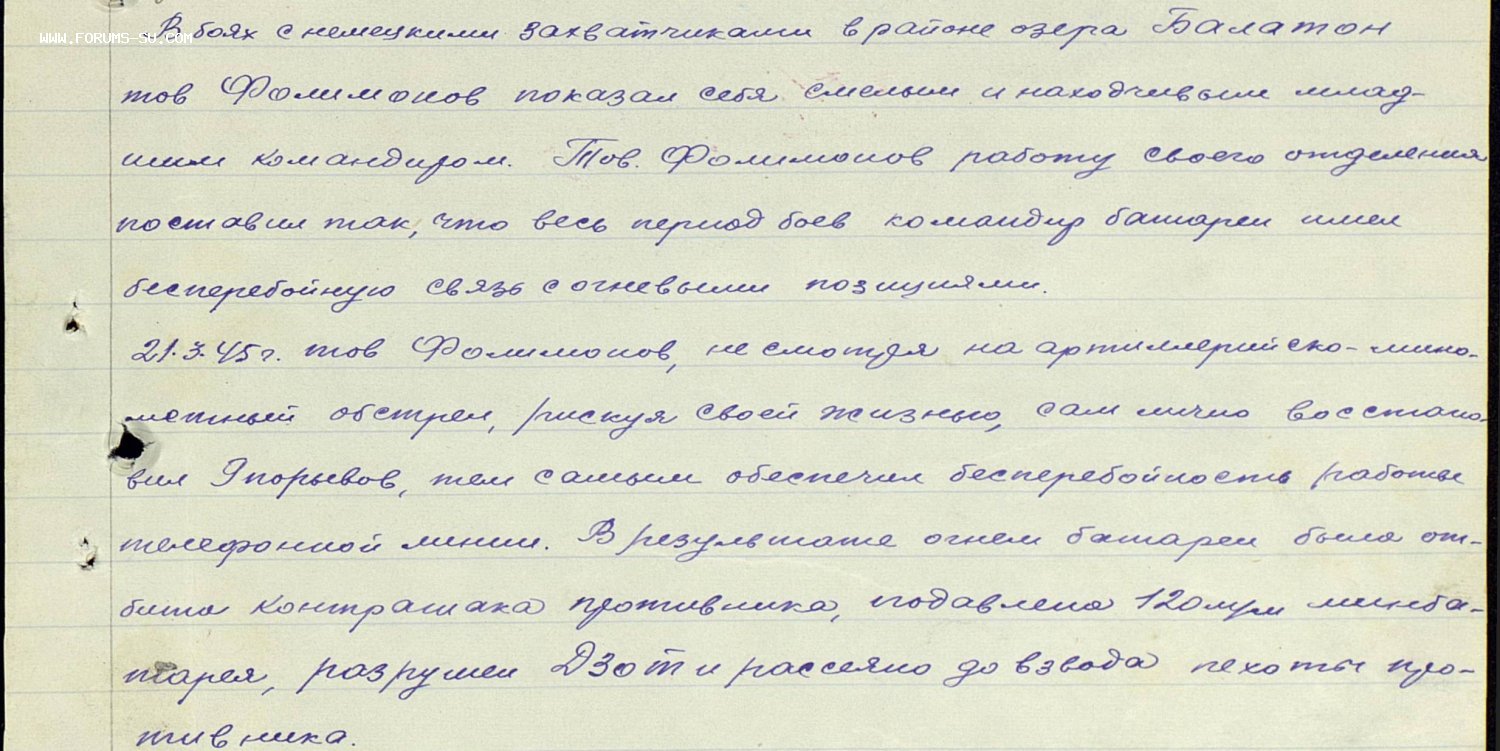 WWW.FORUMS-SU.COM
В боях с немецкими захватчиками в районе озера Балатон
тов Фолимонов показал себя смелым и находчивым млад-
шим командиром. Тов. Фолимонов работу своего отделения
поставил так, что весь период боев командир батареи имел
бесперебойную связь с огневыми позициями.
21.3.45г. тов Фолимонов, не смотря на артиллерийско-мино-
метный обстрел, рискуя своей жизнью, сам лично восстано-
вил 9 порывов, тем самым обеспечил бесперебойность работы
телефонной линии. В результате огнем батареи была от-
бита контратака противника, подавлена 120 м/м минба-
тарея, разрушен ДЗОТ и рассеяно до взвода пехоты про-
тивника.